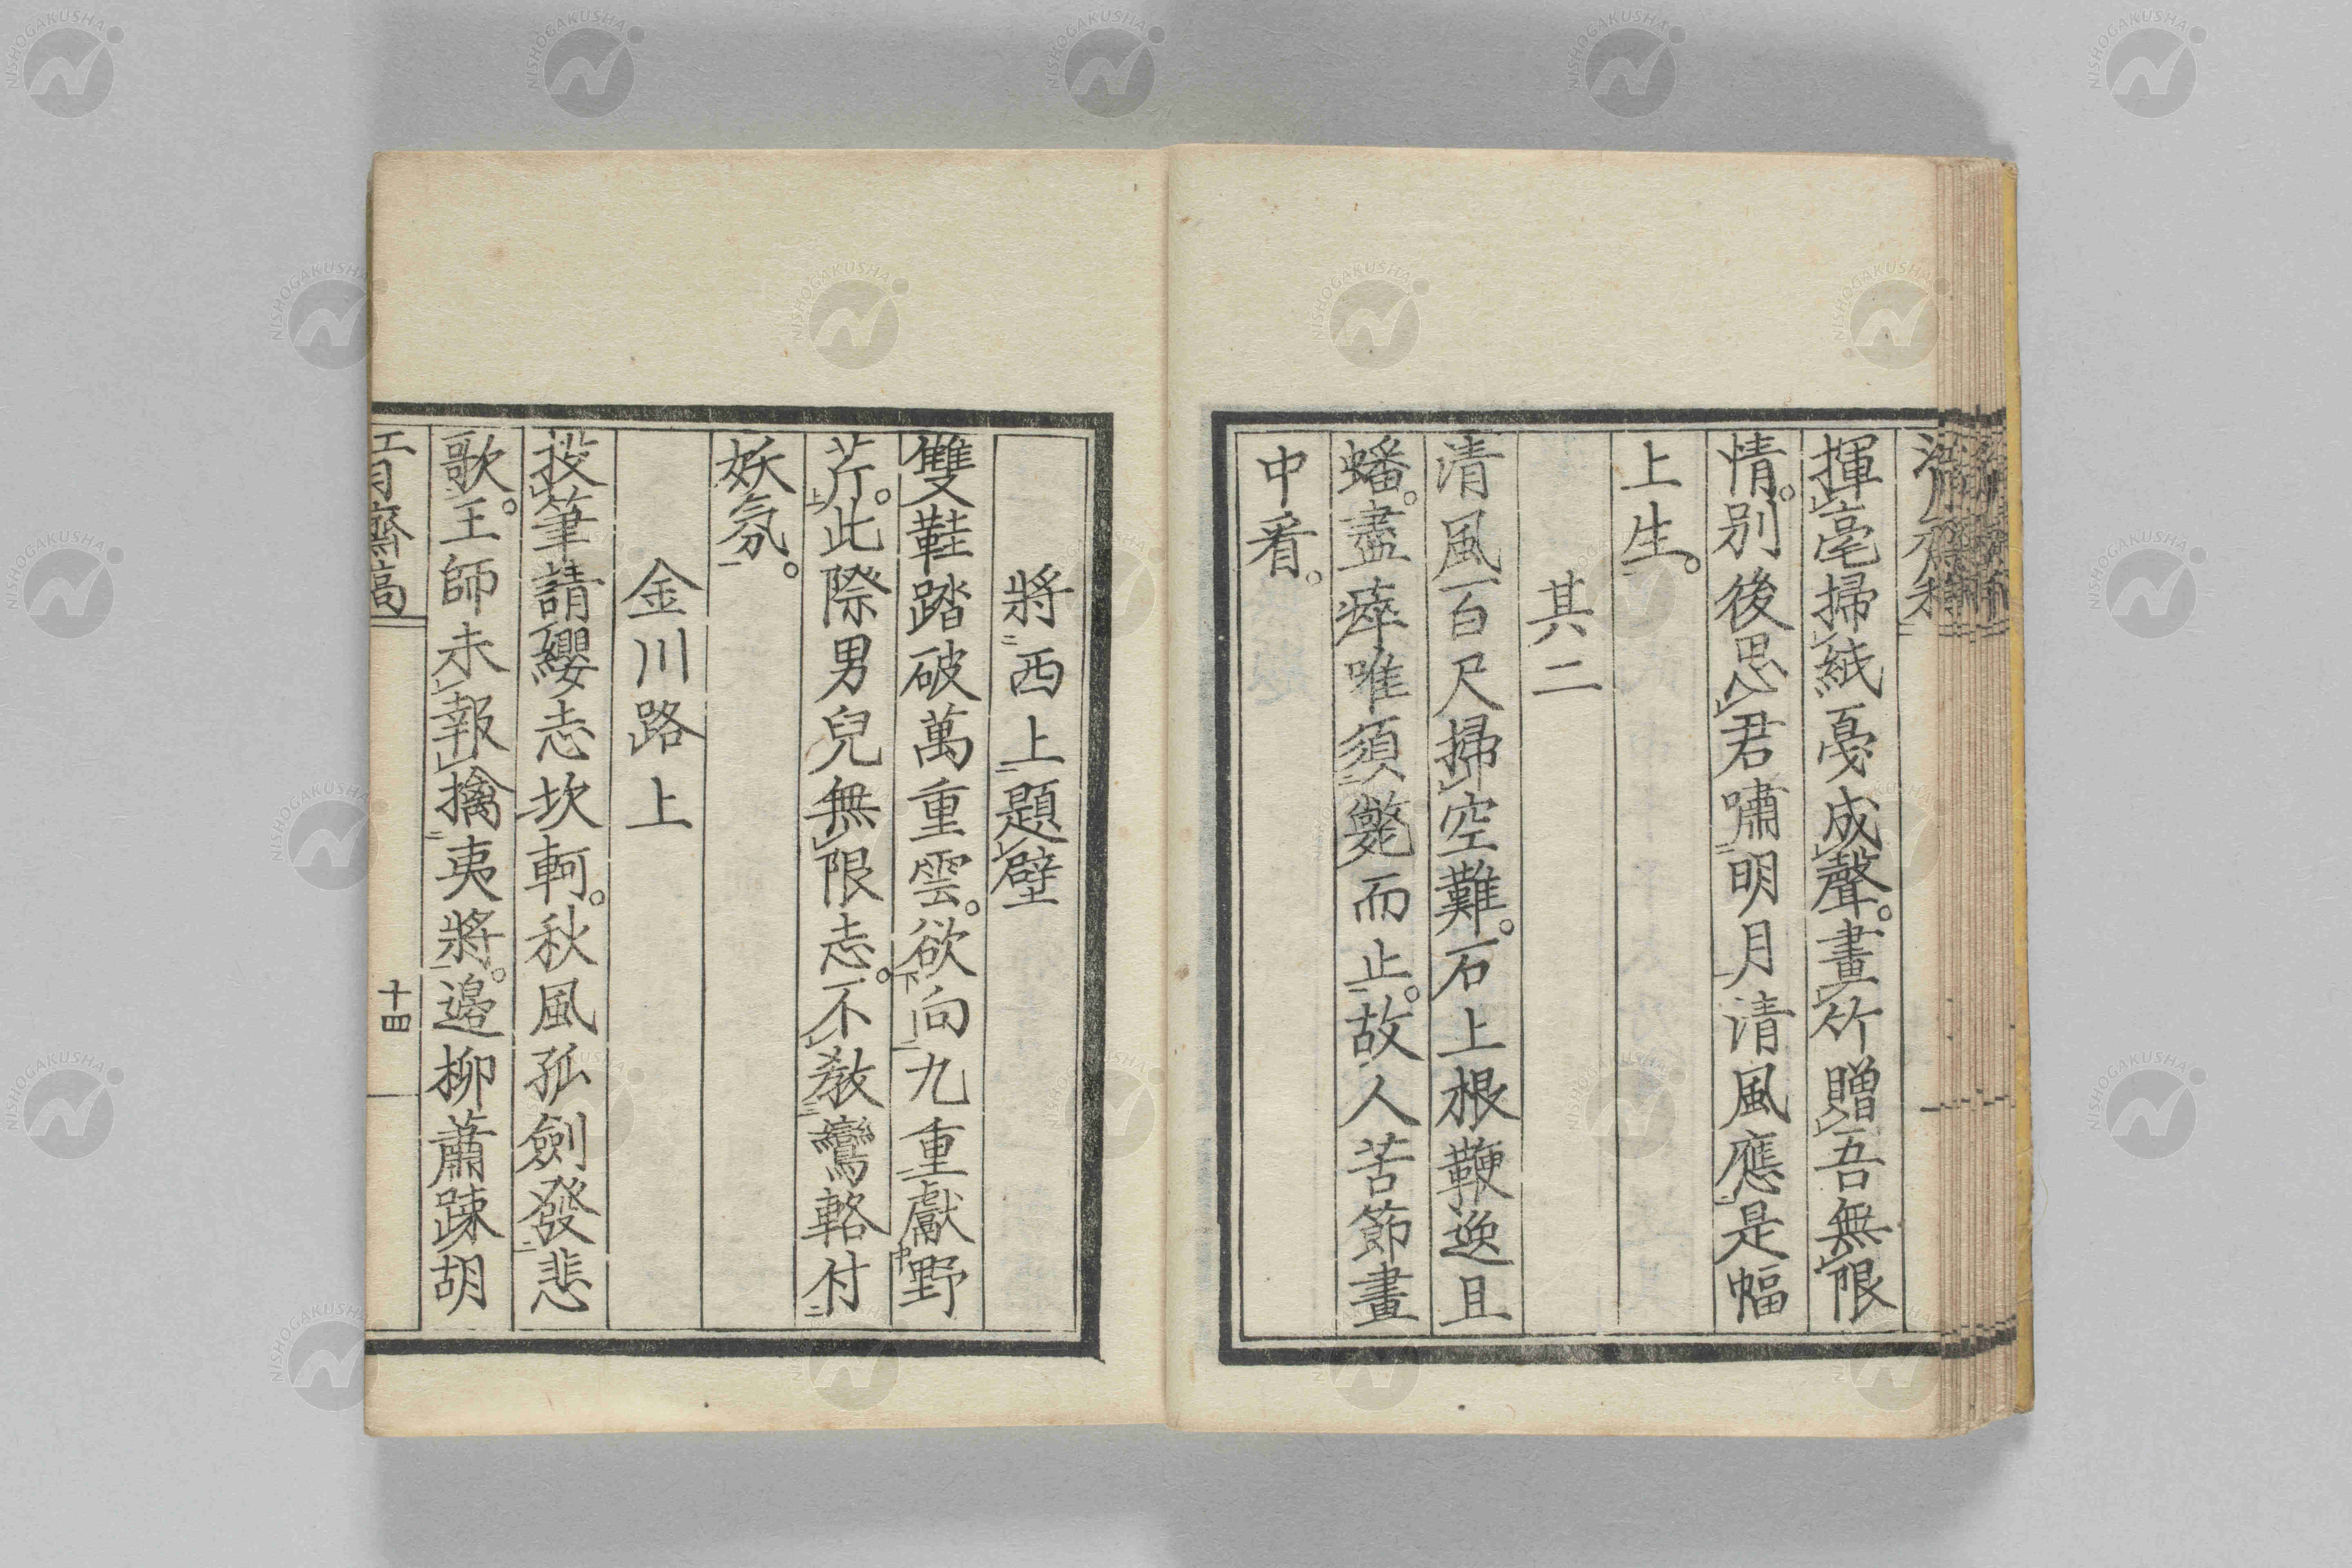 揮毫掃絨戞成聲。畫竹贈吾無限
情。別後思君嘯明月清風應是幅
上生。
其二
清風百尺掃空難。石上根鞭逸且
蟠。盡瘁唯須斃而止。故人苦節畫
中看。
將西上題壁
雙鞋踏破萬重雲。欲向九重獻野
芹。此際男兒無限志。不教鸞輅付
妖氛。
金川路上
投筆請纓志坎軻。秋風孤劍發悲
歌。王師未報擒夷將。邊柳蕭踈胡
十四
NISHOGAKUSHA